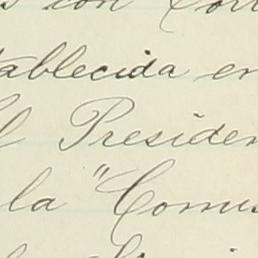 con
tablecida en
Presiden
la "Comis